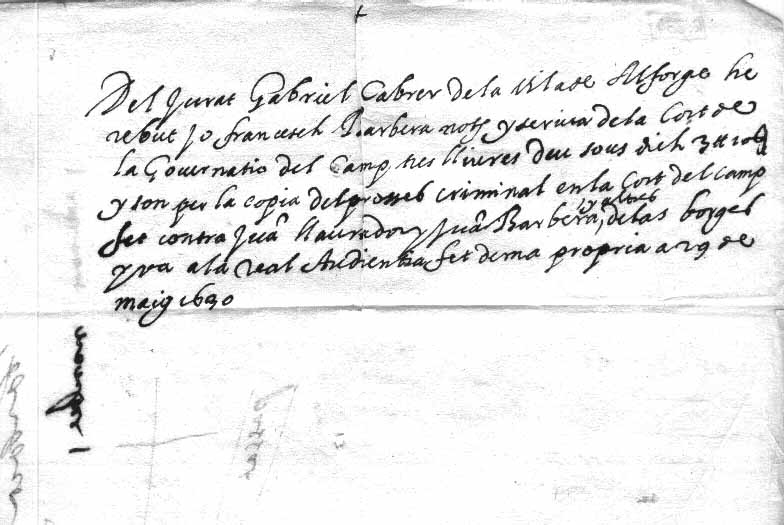 Del Jurat Gabriel Cabrer de la vila de Alforge he
rebut jo francesch Barbera notj y scriva de la Cort de
la Governatio del Camp tres lliures deu sous dich 3 tt 10 s
y son per la copia del proses criminal en la Cort del camp
y altres
fet contra Jua llaurador y Jua Barbera, de las borges
y va a la real Audientia fet de ma propria a 29 de
maig 1630